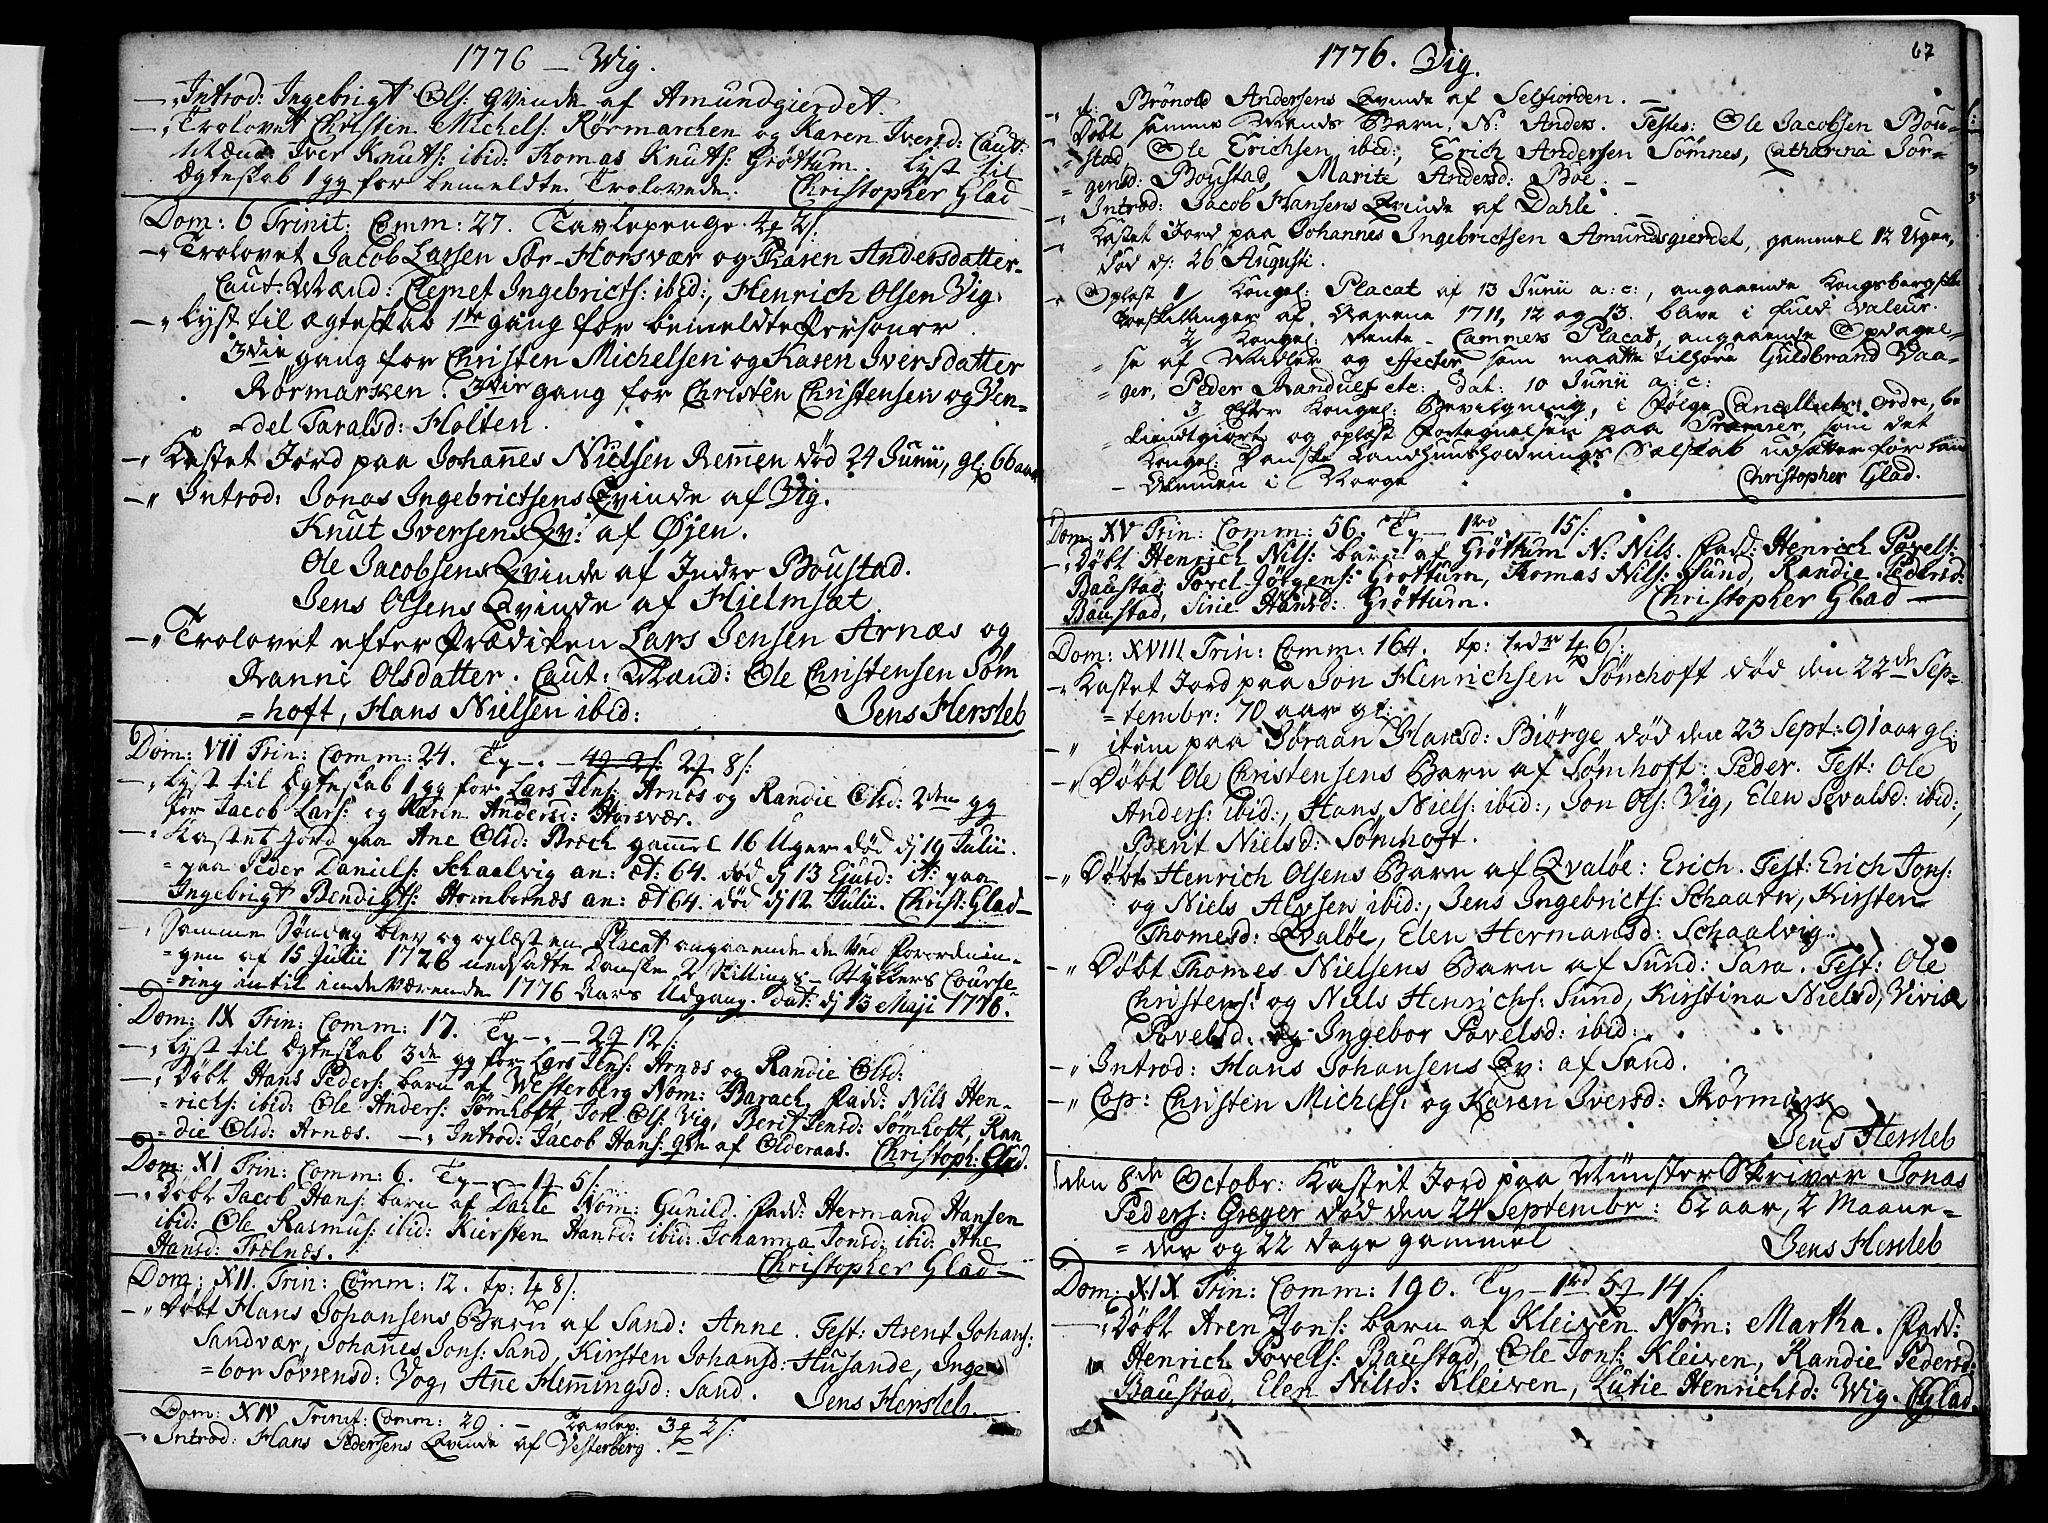 1776 – Wig.
–„ Introd: Ingebrigt Ols: Qvinde af Amundgierdet.
–„ Trolovet Christen Michels: Rørmarchen og Karen Iversd: Caut:
Mænd: Iver Knuts: ibid: Tomas Knuts: Grøttum. Lyst til
Ægteskab 1 gg for bemeldte Trolovede. Christopher Glad
Dom: 6 Trinit: Comm: 27. Tavlepenge 4 2/:
–„ Trolovet Jacob Larsen Horsvær og Karen Andersdatter
Caut: Mænd: Clemet Ingebricts: ibid:, Henrich Olsen Vig.
–„ Lyst til Ægteskab 1ste gang for bemeldte Personer.
3die gang for Christen Michelsen og Karen Iversdatter
Rørmarken. 3die gang for Christen Christensen og Ven=
=del Taralsd: Holten.
–„ Kastet Jord paa Johannes Nielsen Remen død 24 Junii, gl: 66 aar
–„ Introd: Jonas Ingebrictsens Qvinde af Vig.
Knut Iversens Qv: af Øjen.
Ole Jacobsens Qvinde af Indre Boustad.
Jens Olsens Qvinde af Hielmsæt
–„ Trolovet efter Prædiken Lars Jensen Arnæs og
Ranni Olsdatter. Caut: Mænd: Ole Christensen Søm
=hoft, Hans Nielsen ibid: Jens Hersleb
Dom: VII Trin: Comm: 24. 2 8/:
–„ Lyst til Ægteskab 1 gg for Lars Jens: Arnæs og Randie Olsd: 2den gg
for Jacob Lars: og Karen Anders: Horsvær.
–„ Kastet Jord paa Ane Olsd: Bræch gammel 16 Uger død dj 19 Julii.
=paa Peder Daniels: Schaalvig an: æt: 64. død dj 13 Ejusd: it: paa
Ingebrigt Bendigts: Hombornæs an: æt 64. død dj 12 Julii. Christ: Glad
–„ Samme Søndag blev og oplæst en Placat angaaende de ved Forordnin=
=gen af 15 Julii 1726 nedsatte Danske 2 Skillings Stykkers Course=
=ring intil indeværende 1776 Aars Udgang. Dat: dj 13 Maji 1776.
Dom: IX Trin: Comm: 17. 2 12/:
–„ Lyst til Ægteskab 3de gg for Lars Jens: Arnæs og Randie Olsd:
–„ Døbt Hans Peders: barn af Westerberg Nom: Barach. Fadd: Nils Hen=
=richs: ibid: Ole Anders: Sømhoft, Jon Ols: Vig, Berit Jensd: Sømhoft, Ran
=die Olsd: Arnæs. –„ Introd: Jacob Hans: Qv: af Olderaas. Christoph: Glad.
Dom: XI Trin: Comm: 6. 1 5/:
–„ Døbt Jacob Hans: barn af Dahle Nom: Gunild. Fadd: Hermand Hansen
ibid: Ole Rasmus: ibid: Kiersten Hansd: ibid: Johanna Jonsd: ibid: Ane
Hansd: Trælnæs. Christopher Glad
Dom: XII. Trin: Comm: 12. tp: 1 8/:
–„ Døbt Hans Johansens Barn af Sand: Anne. Test: Arent Johans:
Sandvær, Johanes Jons: Sand, Kirsten Johansd: Husande, Inge=
=bor Sørensd: Vog, Ane Hemmingsd: Sand. Jens Hersleb
Dom: XIV Trinit: Comm: 29. – Tavlep: 3 2/:
–„ Introd: Hans Pedersens Qvinde af Vesterberg.
1776. Vig. 67
–„ it: Brønold Andersens Qvinde af Selfiorden. –
–„ Døbt samme Mands Barn, N: Anders. Testes: Ole Jacobsen Bou=
=stad, Ole Erichsen ibid:, Erich Andersen Sømnes, Catharina Jør=
=gensd: Boustad, Marite Andersd: Bøe. –
–„ Introd: Jacob Hansens Qvinde af Dahle. –
–„ Kastet Jord paa Johannes Ingebrictsen Amundsgierdet, gammel 12 Uger,
død d: 26 Augusti.
–„ Oplæst 1 Kongel: Placat af 13 Junii a: c:, angaaende Kongsbergske
Toeskillinger af Aarene 1711, 12 og 13. blive i fuld Valeur.
2 Kongel: Rente-Cammers Placat, angaaende Opdagel=
=se af Midler og Effecter, som maatte tilhøre Guldbrand Baa=
=ger, Peder Randulf etc: Dat: 10 Junii a: c:
3 Efter Kongel: Bevilgning, i følge Cancelliets Ordre, be
kiendtgiort og oplæst Fortegnelsen paa Præmier, som det
Kongel: Danske Landhuusholdnings Selskab udsætter for
i Norge Christopher Glad.
Dom: XV Trin: Comm: 56. 1 15/:
–„ Døbt Henrich Nils: barn af Grøttum N: Nils. Fadd: Henrich Povels:
Baustad, Povel Jørgens: Grøttum, Thomas Nils: Sund, Randie Pedersd:
Baustad, Sirie Hansd: Grøttum. Christopher Glad
Dom: XVIII Trin: Comm: 164. tp: 1 rdr 4 6/:
–„ Kastet Jord paa Jon Henrichsen Sømhoft død den 22de Sep=
=tembr: 70 aar gl:
–„ item paa Jøraan Hansd: Biørge død den 23 Sept: 91 aar gl:
–„ Døbt Ole Christensens Barn af Sømhoft: Peder. Test: Ole
Anders: ibid:, Hans Niels: ibid:, Jon Ols: Vig, Elen Sevalsd: ibid:,
Berit Nielsd: Sømhoft.
–„ Døbt Henrich Olsens Barn af Qvaløe: Erich. Test: Erich Jons:
og Niels Alvsen ibid:, Jens Ingebricts: Schaarn, Kirsten
Thomesd: Qvaløe, Elen Hermansd: Schaalvig.
–„ Døbt Thomes Nielsens Barn af Sund: Sara. Test: Ole
Christens: og Niels Henrichs: Sund, Kirstina Nielsd, Vivik
Povelsd. og Ingebor Povelsd: ibid:
–„ Introd: Hans Johansens Qv: af Sand.
–„ Cop: Christen Michels: og Karen Iversd: Rørmark
Jens Hersleb
den 8de Octobr: Kastet Jord paa Münster Skriver Jonas
Peders: Greger død den 24 Septembr: 62 aar, 2 Maane=
=der og 22 dage gammel Jens Hersleb
Dom: XIX Trin: Comm: 190. 1 rd 5 14/:
–„ Døbt Aren Jons: barn af Kleiven Nom: Martha. Fadd:
Henrich Povels: Baustad, Ole Jons: Kleiven, Randie Pedersd:
Baustad, Elen Nilsd: Kleiven, Lutie Henrichsd: Wig. CGlad.